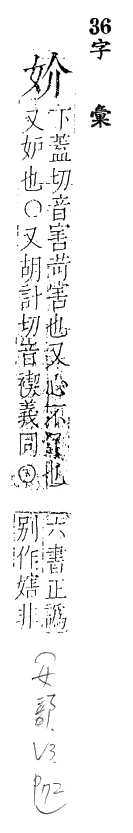 36字彙
妎
下蓋切音害苛害也又心不也
又妒也○又胡計切音禊義同○
六書正譌
別作非
(女部, V3, P72)